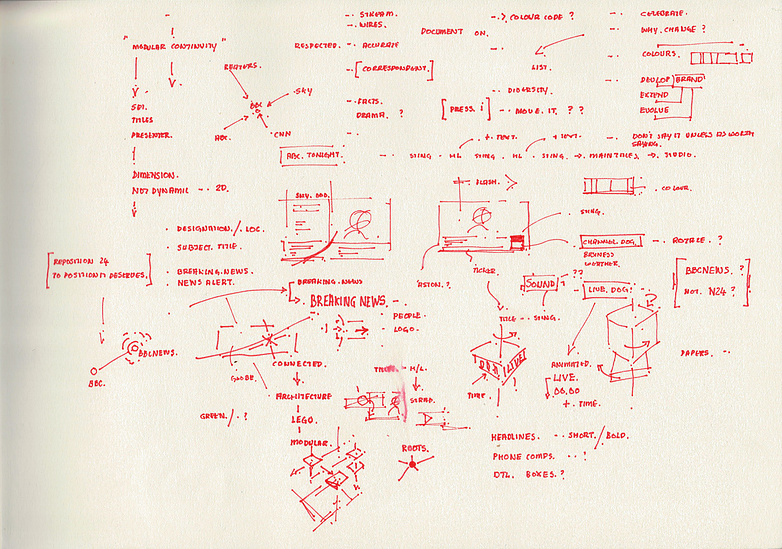 - STREAM.
- WIRES.
RESPECTED. - ACCURATE
[CORRESPONDENT.]
- FACTS.
DRAMA. ?
"MODULAR CONTINUITY"
SET.
TITLES
PRESENTER.
DIMENSION.
NOT DYNAMIC - . 2D.
REUTERS.
SKY
BBC
ABC.
CNN
-> COLOUR CODE ?
DOCUMENT ON.
LIST.
- DIVERSITY
[PRESS. i] - MOVE. IT. ? ?
- CELEBRATE.
- WHY. CHANGE ?
- COLOURS.
- DEVELOP BRAND
EXTEND
EVOLVE
- DON'T SAY IT UNLESS ITS WORTH
SAYING.
+ TEXT. + TEXT.
ABC. TONIGHT. - STING - HL STING. HL - STING. -> MAINTITLES -> STUDIO.
FLASH.
- COLOUR.
. DESIGNATION. / LOC.
. SUBJECT. TITLE.
. BREAKING. NEWS.
NEWS ALERT.
[REPOSITION 24
TO POSITION IT DESERVES.]
BBC.
BBCNEWS.
BREAKING. NEWS
BREAKING NEWS. -
PEOPLE.
LOGO.
GLOBE.
CONNECTED.
ARCHITECTURE
LEGO.
MODULAR.
GREEN. / . ?
- H/L.
STRAP.
ROOTS.
STING.
CHANNEL. DOG. - ROTATE. ?
BUSINESS
WEATHER.
ASTON. ?
TICKER.
SOUND ??
LIVE. DOG.
[BBCNEWS. ?
NOT. N24 ?]
TITLE - . STING.
LIVE
TIME.
ANIMATED.
LIVE.
00.00
+ . TIME.
PAPERS. -
HEADLINES. - . SHORT. / BOLD.
PHONE COMPS. - . ?
DTL. BOXES. ?